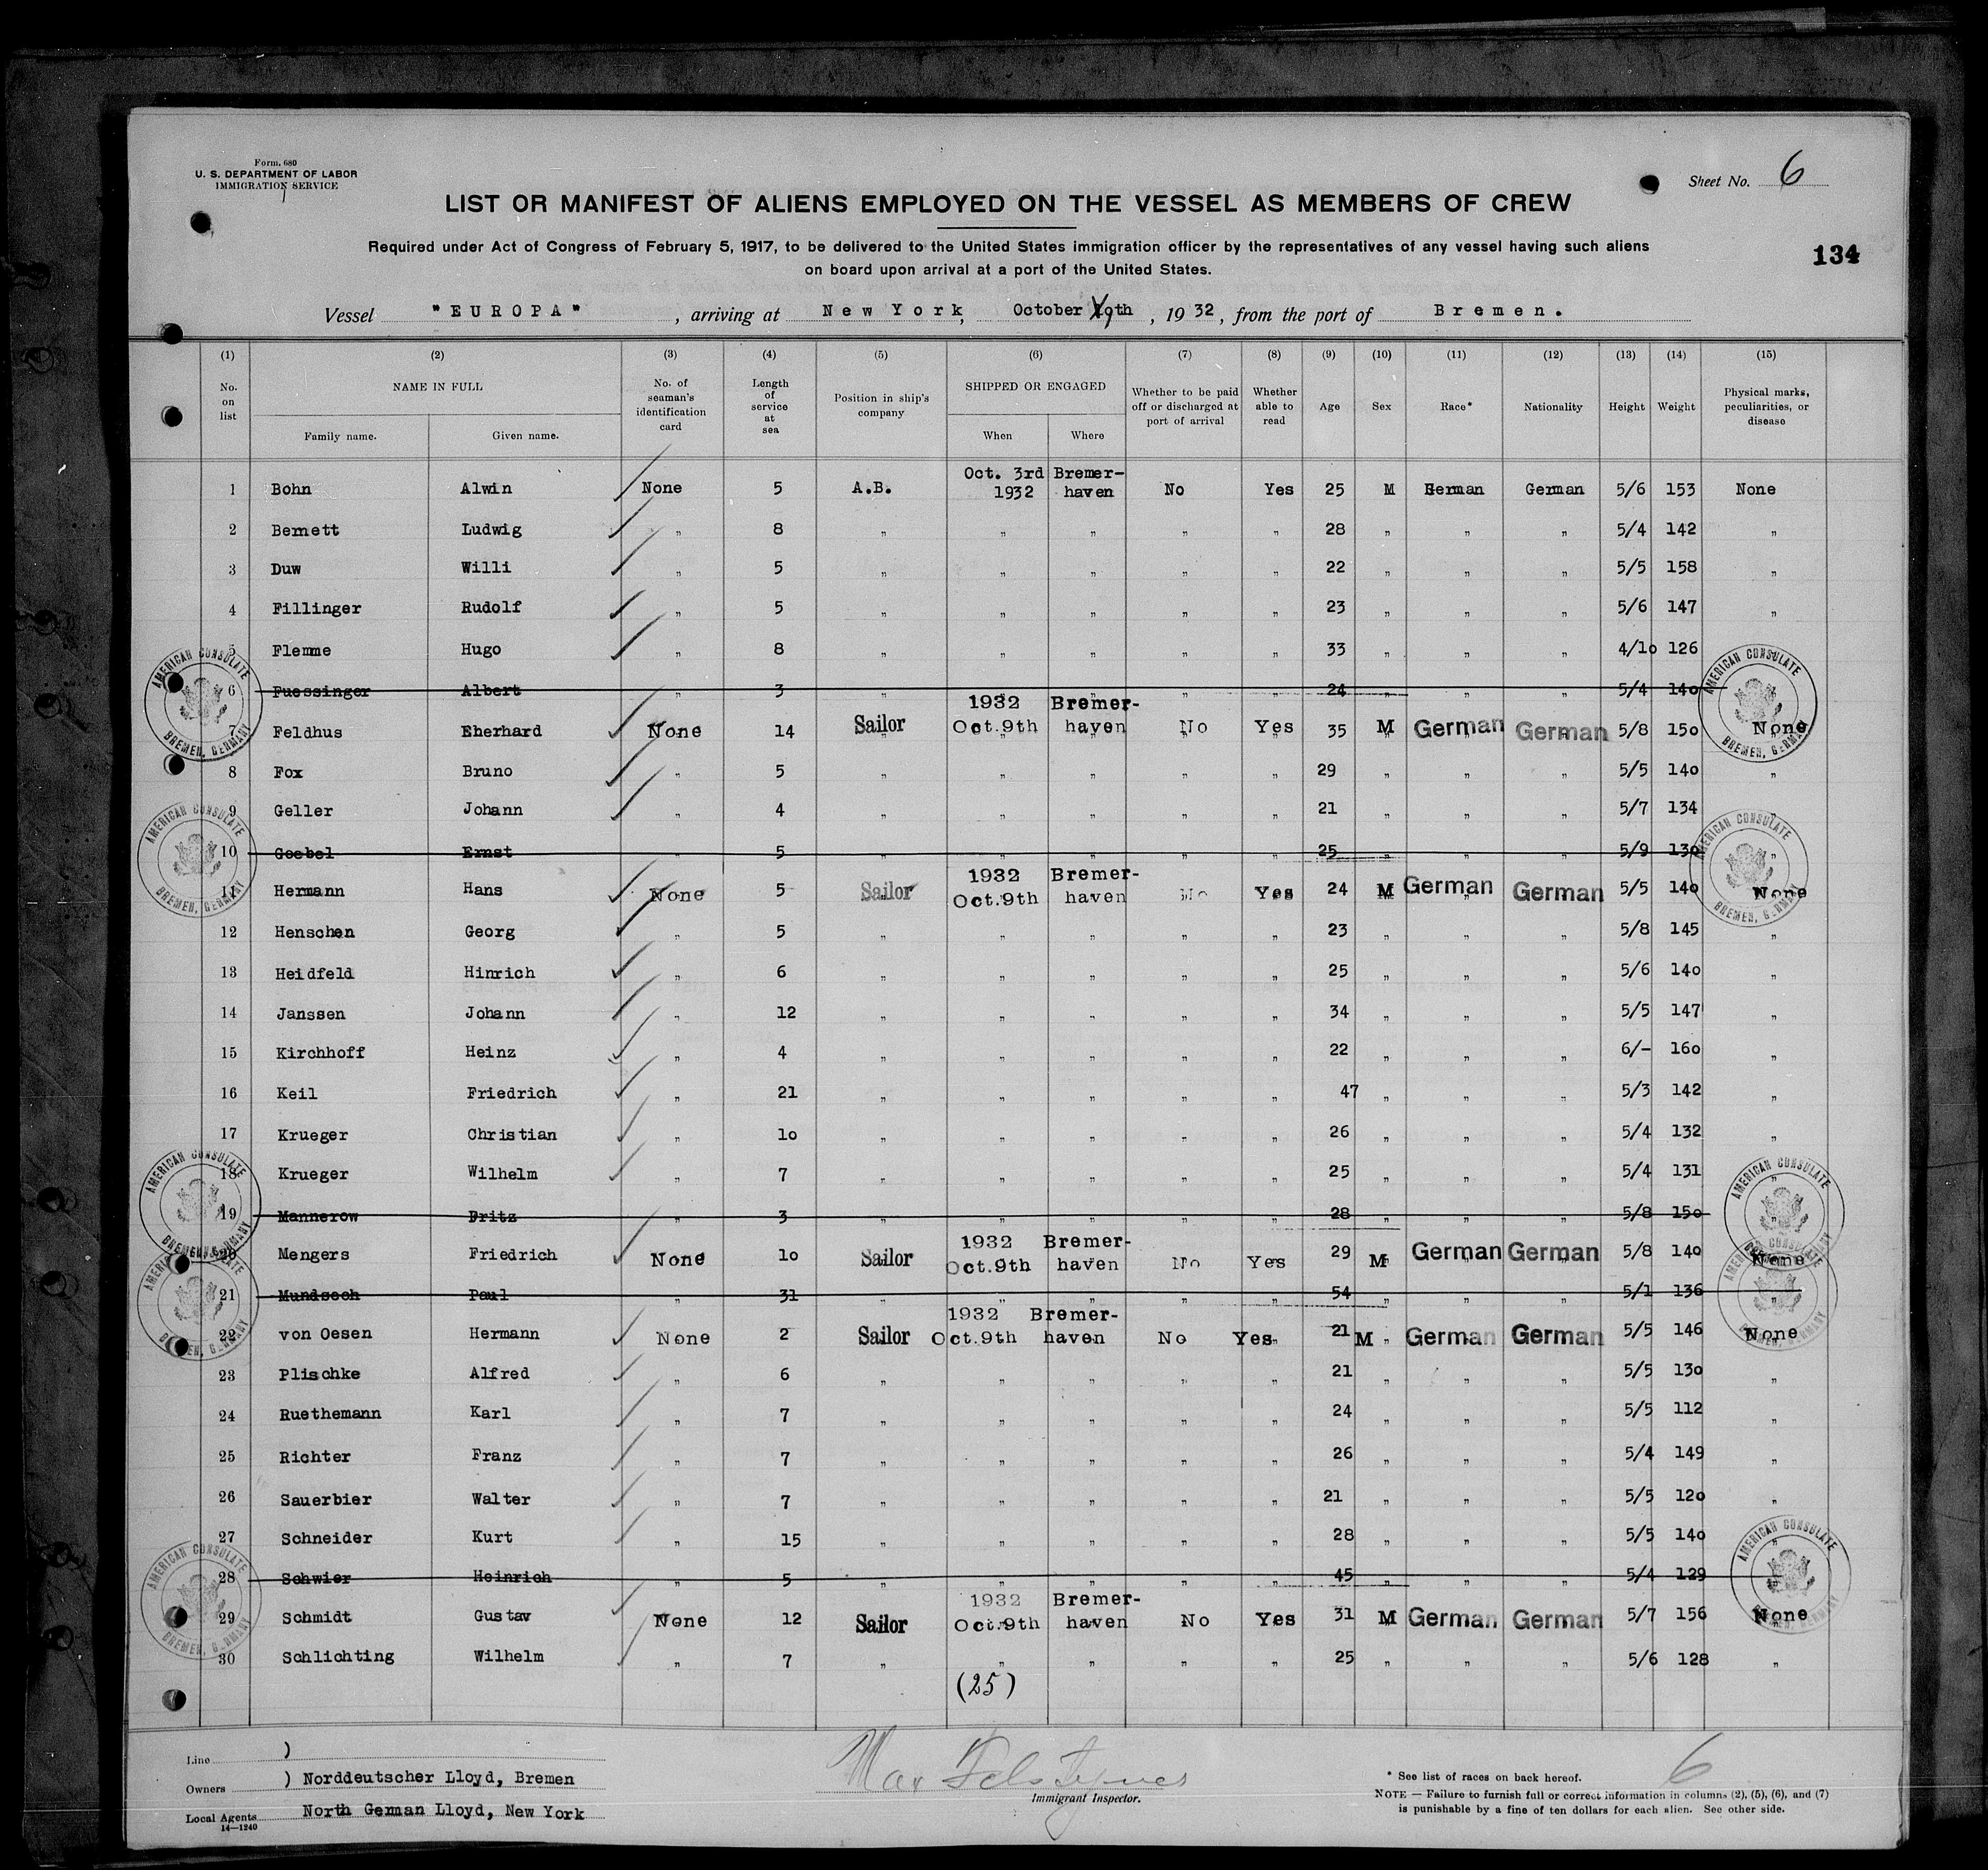 Form. 680
U. S. DEPARTMENT OF LABOR
IMMIGRATION SERVICE
Sheet No. 6
LIST OR MANIFEST OF ALIENS EMPLOYED ON THE VESSEL AS MEMBERS OF CREW
Required under Act of Congress of February 5, 1917, to be delivered to the United States immigration officer by the representatives of any vessel having such aliens
on board upon arrival at a port of the United States.
134
Vessel "EUROPA", arriving at New York, October , 1932, from the port of Bremen.
(1) (2) (3) (4) (5) (6) (7) (8) (9) (10) (11) (12) (13) (14) (15)
No. on list
NAME IN FULL
Family name. Given name.
No. of seaman's identification card
Length of service at sea
Position in ship's company
SHIPPED OR ENGAGED
When Where
Whether to be paid off or discharged at port of arrival
Whether able to read
Age
Sex
Race*
Nationality
Height
Weight
Physical marks, peculiarities, or disease
1 Bohn Alwin None 5 A.B. Oct. 3rd 1932 Bremer-haven No Yes 25 M German German 5/6 153 None
2 Bernett Ludwig " 8 " " " " " 28 " " " 5/4 142 "
3 Duw Willi " 5 " " " " " 22 " " " 5/5 158 "
4 Fillinger Rudolf " 5 " " " " " 23 " " " 5/6 147 "
5 Flemme Hugo " 8 " " " " " 33 " " " 4/10 126 "
6 Fuessinger Albert " 3 " " " " " 24 " " " 5/4 140
7 Feldhus Eberhard None 14 Sailor 1932 Oct.9th Bremer-haven No Yes 35 M German German 5/8 150 None
8 Fox Bruno " 5 " " " " " 29 " " " 5/5 140 "
9 Geller Johann " 4 " " " " " 21 " " " 5/7 134 "
10 Goebel Ernst " 5 " " " " " 25 " " " 5/9 130 "
11 Hermann Hans None 5 Sailor 1932 Oct.9th Bremer-haven No Yes 24 M German German 5/5 140 None
12 Henschen Georg " 5 " " " " " 23 " " " 5/8 145 "
13 Heidfeld Hinrich " 6 " " " " " 25 " " " 5/6 140 "
14 Janssen Johann " 12 " " " " " 34 " " " 5/5 147 "
15 Kirchhoff Heinz " 4 " " " " " 22 " " " 6/- 160 "
16 Keil Friedrich " 21 " " " " " 47 " " " 5/3 142 "
17 Krueger Christian " 10 " " " " " 26 " " " 5/4 132 "
18 Krueger Wilhelm " 7 " " " " " 25 " " " 5/4 131 "
19 Mannerow Fritz " 3 " " " " " 28 " " " 5/8 150 "
20 Mengers Friedrich None 10 Sailor 1932 Oct.9th Bremer-haven No Yes 29 M German German 5/8 140 None
21 Mundsech Paul " 31 " " " " " 54 " " " 5/1 136 "
22 von Oesen Hermann None 2 Sailor 1932 Oct.9th Bremer-haven No Yes 21 M German German 5/5 146 None
23 Plischke Alfred " 6 " " " " " 21 " " " 5/5 130 "
24 Ruethemann Karl " 7 " " " " " 24 " " " 5/5 112 "
25 Richter Franz " 7 " " " " " 26 " " " 5/4 149 "
26 Sauerbier Walter " 7 " " " " " 21 " " " 5/5 120 "
27 Schneider Kurt " 15 " " " " " 28 " " " 5/5 140 "
28 Schwier Heinrich " 5 " " " " " 45 " " " 5/4 129 "
29 Schmidt Gustav None 12 Sailor 1932 Oct.9th Bremer-haven No Yes 31 M German German 5/7 156 None
30 Schlichting Wilhelm " 7 " " " " " 25 " " " 5/6 128 "
(25)
AMERICAN CONSULATE BREMEN, GERMANY
AMERICAN CONSULATE BREMEN, GERMANY
AMERICAN CONSULATE BREMEN, GERMANY
AMERICAN CONSULATE BREMEN, GERMANY
AMERICAN CONSULATE BREMEN, GERMANY
AMERICAN CONSULATE BREMEN, GERMANY
AMERICAN CONSULATE BREMEN, GERMANY
AMERICAN CONSULATE BREMEN, GERMANY
AMERICAN CONSULATE BREMEN, GERMANY
AMERICAN CONSULATE BREMEN, GERMANY
Line )
Owners ) Norddeutscher Lloyd, Bremen
Local Agents North German Lloyd, New York
14—1240
Max
Immigrant Inspector.
6
* See list of races on back hereof.
NOTE — Failure to furnish full or correct information in columns (2), (5), (6), and (7)
is punishable by a fine of ten dollars for each alien. See other side.